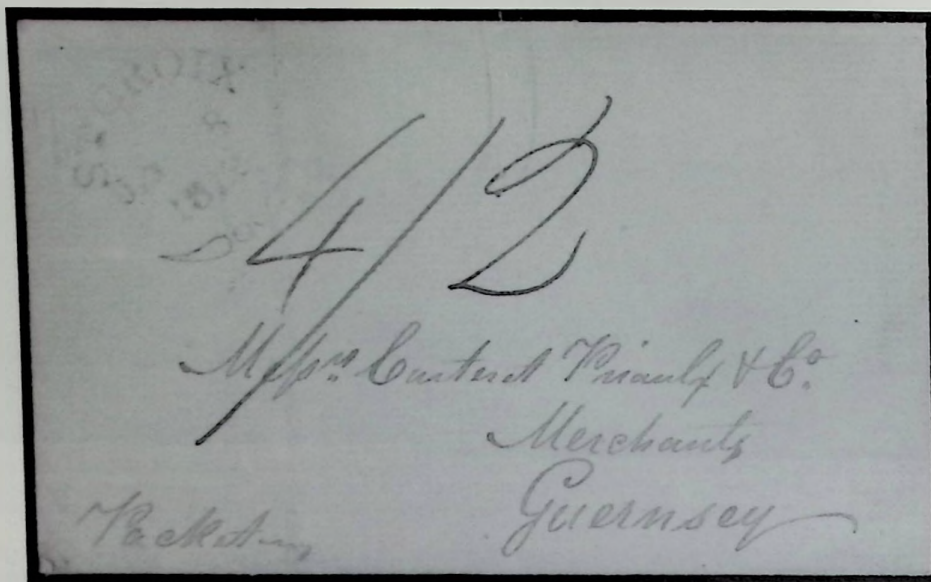 4/2
Messrs. Carteret Priaulx & Co.
Merchants
Guernsey
Packet